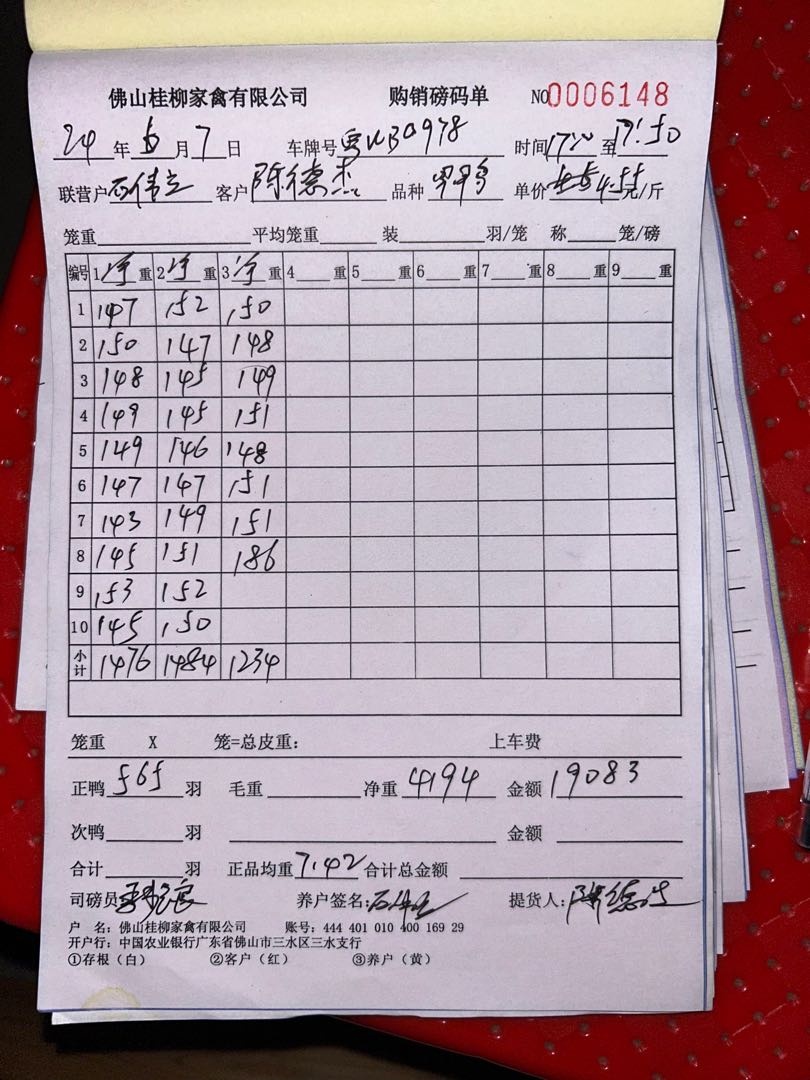 佛山桂柳家禽有限公司 购销磅码单 NO0006148
24年5月7日 车牌号 时间17:20至17:50
联营户石伟立 客户陈德杰 品种 单价4.55元/斤
笼重 平均笼重 装 羽/笼 称 笼/磅
编号 1净重 2净重 3净重 4重 5重 6重 7重 8重 9重
1 147 152 150
2 150 147 148
3 148 145 149
4 149 145 151
5 149 146 148
6 147 147 151
7 143 149 151
8 145 151 186
9 153 152
10 145 150
小计 1476 1484 1234
笼重 X 笼=总皮重: 上车费
正鸭565羽 毛重 净重4194 金额19083
次鸭 羽 金额
合计 羽 正品均重7.42 合计总金额
司磅员 养户签名: 提货人:
户 名: 佛山桂柳家禽有限公司 账号: 444 401 010 400 169 29
开户行: 中国农业银行广东省佛山市三水区三水支行
①存根（白） ②客户（红） ③养户（黄）